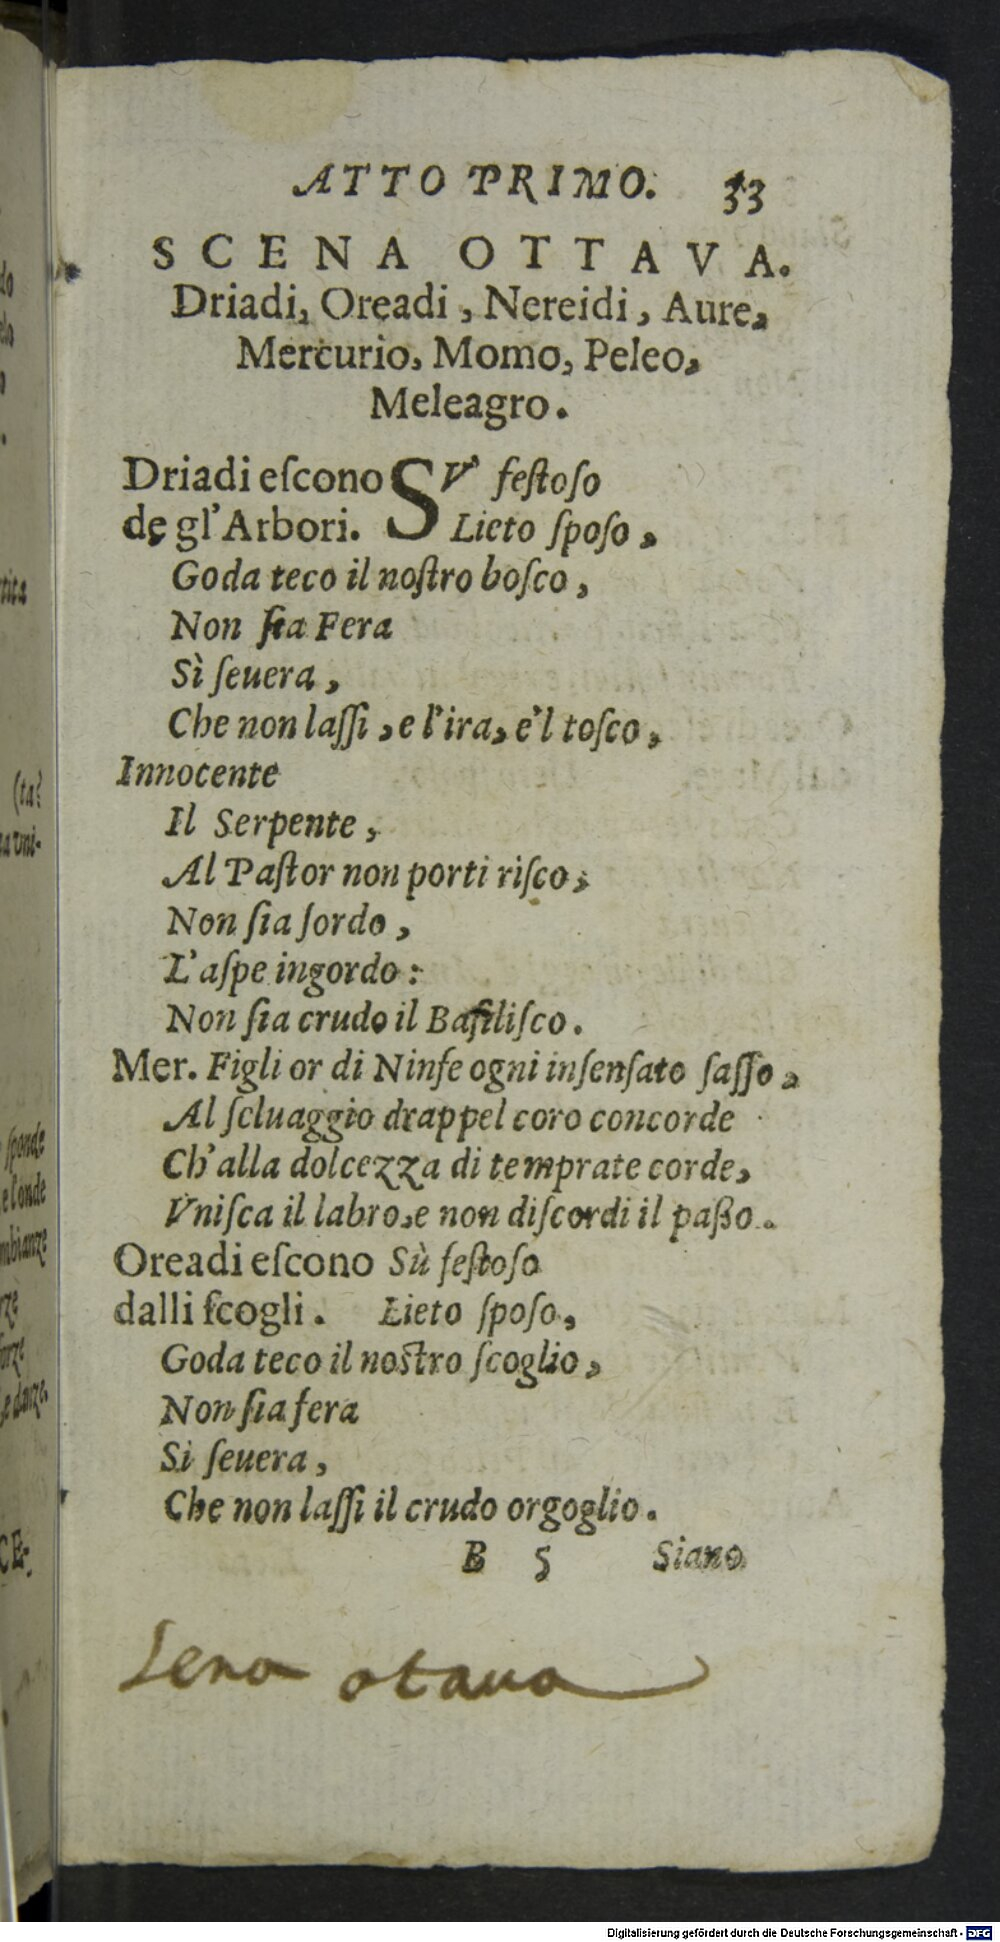 ATTO PRIMO. 33
SCENA OTTAVA.
Driadi, Oreadi, Nereidi, Aure,
Mercurio, Momo, Peleo,
Meleagro.
Driadi eſcono SV' feſtoſo
de gl'Arbori. Lieto ſpoſo,
Goda teco il noſtro boſco,
Non ſia Fera
Sì ſeuera,
Che non laſſi, e l'ira, e'l toſco,
Innocente
Il Serpente,
Al Paſtor non porti riſco,
Non ſia ſordo,
L'aſpe ingordo:
Non ſia crudo il Baſiliſco.
Mer. Figli or di Ninfe ogni inſenſato ſaſſo,
Al ſeluaggio drappel coro concorde
Ch'alla dolcezza di temprate corde,
Vniſca il labro, e non diſcordi il paßo.
Oreadi eſcono Sù feſtoſo
dalli ſcogli. Lieto ſpoſo,
Goda teco il noſtro ſcoglio,
Non ſia fera
Si ſeuera,
Che non laſſi il crudo orgoglio.
B 5 Siano
Sena otaua
Digitalisierung gefördert durch die Deutsche Forschungsgemeinschaft - DFG